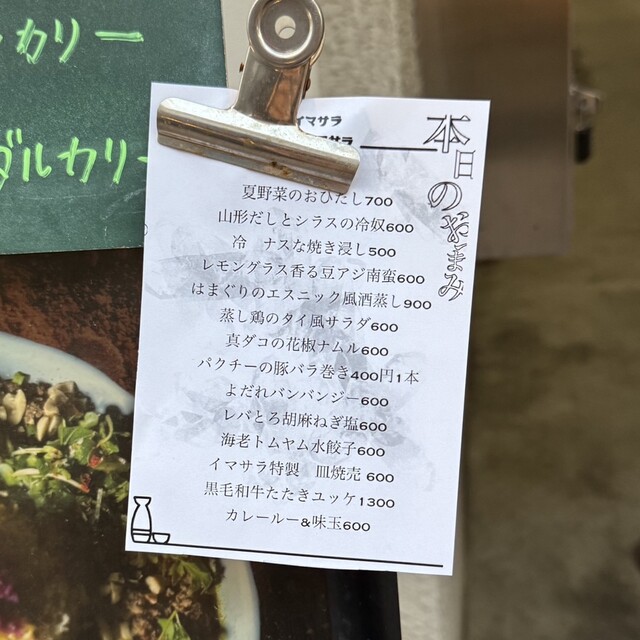 カリー
ダルカリー
イマサラ
本日のやまみ
夏野菜のおひたし700
山形だしとシラスの冷奴600
冷　ナスな焼き浸し500
レモングラス香る豆アジ南蛮600
はまぐりのエスニック風酒蒸し900
蒸し鶏のタイ風サラダ600
真ダコの花椒ナムル600
パクチーの豚バラ巻き400円1本
よだれバンバンジー600
レバとろ胡麻ねぎ塩600
海老トムヤム水餃子600
イマサラ特製　皿焼売 600
黒毛和牛たたきユッケ1300
カレールー&味玉600